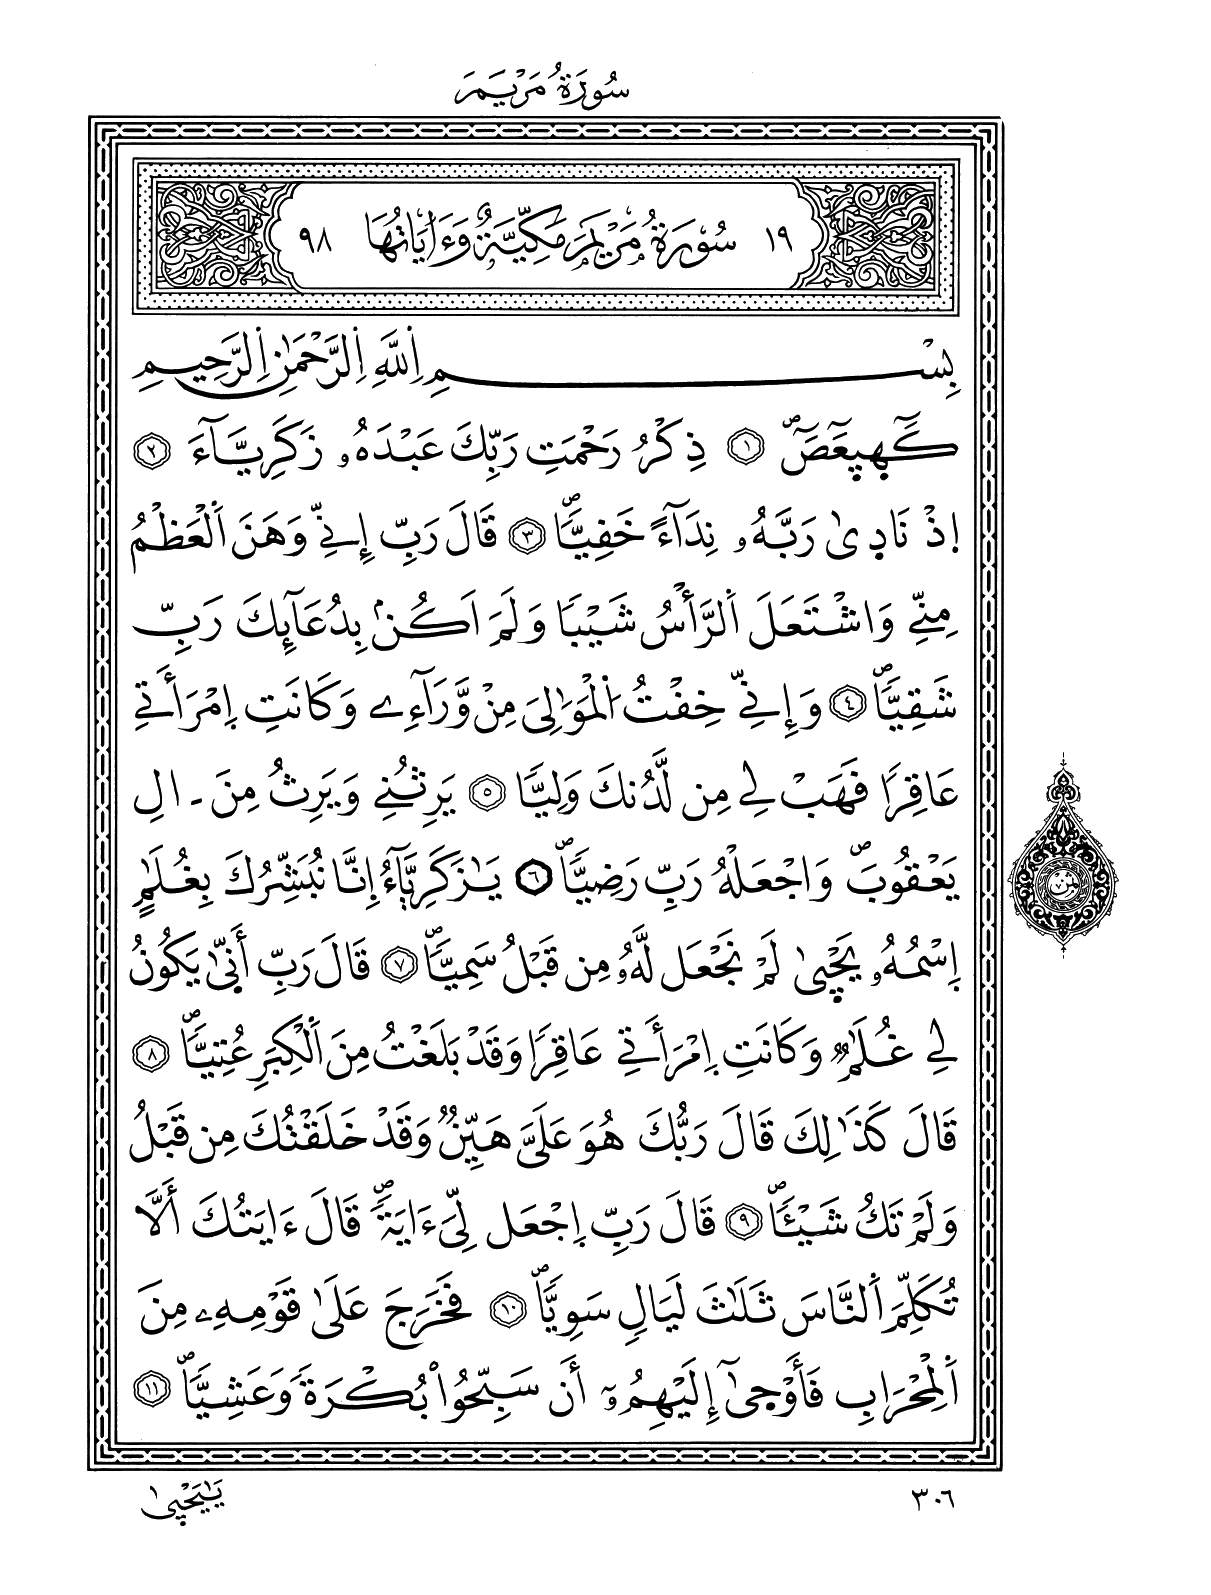 سُورَةُ مَرْيَمَ
١٩ سُورَةُ مَرْيَمَ مَكِّيَّةٌ وَءَايَاتُهَا ٩٨
بِسْمِ اِ۬للَّهِ اِ۬لرَّحْمَٰنِ اِ۬لرَّحِيمِ
كَٓهيعَٓصَٓ ١ ذِكْرُ رَحْمَتِ رَبِّكَ عَبْدَهُۥ زَكَرِيَّآءَ ٢
إِذْ نَادۭيٰ رَبَّهُۥ نِدَآءً خَفِيّٗاۖ ٣ قَالَ رَبِّ إِنِّے وَهَنَ اَ۬لْعَظْمُ
مِنِّے وَاشْتَعَلَ اَ۬لرَّأْسُ شَيْبٗا وَلَمَ اَكُنۢ بِدُعَآئِكَ رَبِّ
شَقِيّٗاۖ ٤ وَإِنِّے خِفْتُ اُ۬لْمَوَٰلِيَ مِنْ وَّرَآءِے وَكَانَتِ اِ۪مْرَأَتِے
عَاقِرٗا فَهَبْ لِے مِن لَّدُنكَ وَلِيّٗا ٥ يَرِثُنِے وَيَرِثُ مِنَ ـ الِ
يَعْقُوبَۖ وَاجْعَلْهُ رَبِّ رَضِيّٗاۖ ٦ يَٰزَكَرِيَّآءُ اِ۪نَّا نُبَشِّرُكَ بِغُلَٰمٍ
اِ۪سْمُهُۥ يَحْيۭيٰ لَمْ نَجْعَل لَّهُۥ مِن قَبْلُ سَمِيّٗاۖ ٧ قَالَ رَبِّ أَنّۭيٰ يَكُونُ
لِے غُلَٰمٞ وَكَانَتِ اِ۪مْرَأَتِے عَاقِرٗا وَقَدْ بَلَغْتُ مِنَ اَ۬لْكِبَرِ عُتِيّٗاۖ ٨
قَالَ كَذَٰلِكَ قَالَ رَبُّكَ هُوَ عَلَيَّ هَيِّنٞ وَقَدْ خَلَقْتُكَ مِن قَبْلُ
وَلَمْ تَكُ شَيْـٔٗاۖ ٩ قَالَ رَبِّ اِ۪جْعَل لِّيَ ءَايَةٗۖ قَالَ ءَايَتُكَ أَلَّا
تُكَلِّمَ اَ۬لنَّاسَ ثَلَٰثَ لَيَالٖ سَوِيّٗاۖ ١٠ فَخَرَجَ عَلَىٰ قَوْمِهِۦ مِنَ
اَ۬لْمِحْرَابِ فَأَوْح۪يٰٓ إِلَيْهِمُۥٓ أَن سَبِّحُواْ بُكْرَةٗ وَعَشِيّٗاۖ ١١
٣٠٦
يَٰيَحْيۭيٰ